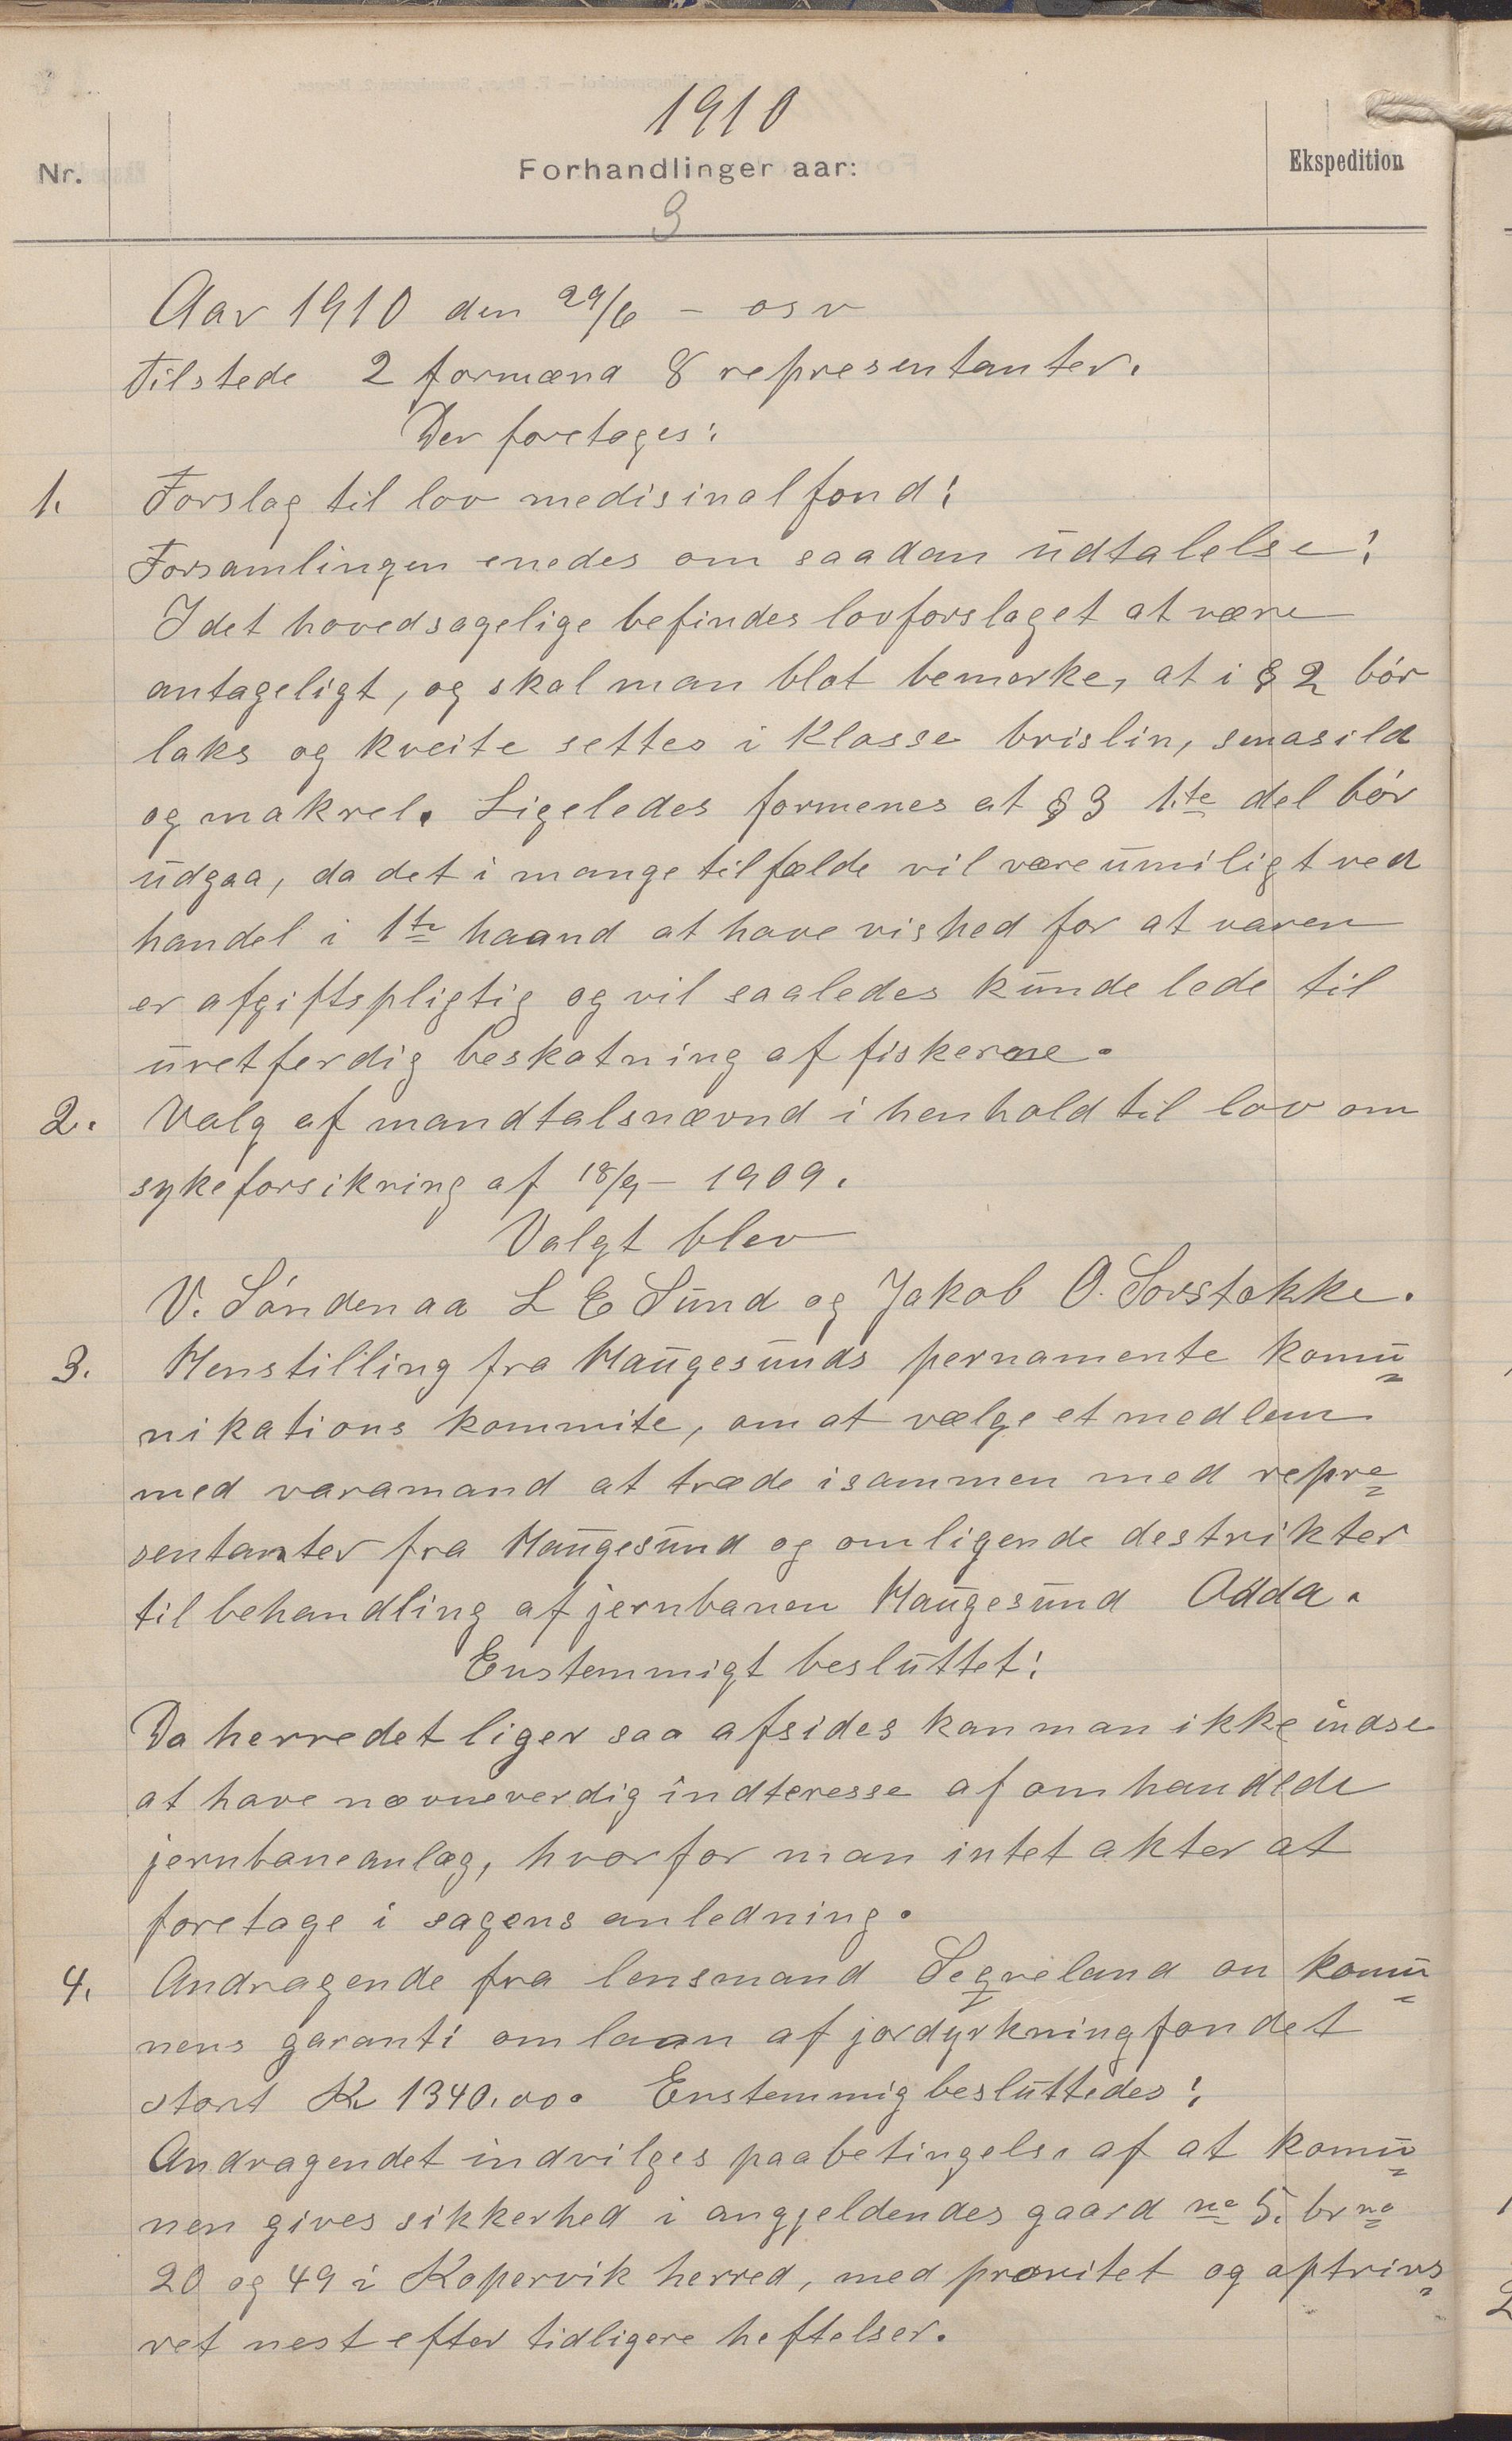 1910
Nr.
Forhandlinger aar:
Ekspedition
3
Aar 1910 den 29/6 – osv
Tilstede 2 formænd 8 representanter.
Der foretages:
1. Forslag til lov medisinalfond:
Forsamlingen enedes om saadan udtalelse:
I det hovedsagelige befindes lovforslaget at være
antageligt, og skal man blot bemerke, at i § 2 bór
laks og kveite settes i klasse brislin, smasild
og makrel. Ligeledes formenes at § 3 1.te del bór
udgaa, da det i mange tilfælde vil være umiligt ved
handel i 1te haand at have vished for at varen
er afgiftspligtig og vil saaledes kunde lede til
uretferdig beskatning af fiskerne.
2. Valg af mandtalsnævnd i henhold til lov om
sykeforsikring af 18/9 – 1909.
Valgt blev
V. Sóndenaa L E Sund og Jakob O. Sorstokke.
3. Henstilling fra Haugesunds pernamente komu=
nikations kommite, om at vælge et medlem
med varamand at træde isammen med repre=
sentanter fra Haugesund og omligende destrikter
til behandling af jernbanen Haugesund Odda.
Enstemmigt besluttet:
Da herredet liger saa afsides kan man ikke indse
at have nævneverdig indteresse af omhandlede
jernbaneanlæg, hvorfor man intet akter at
foretage i sagens anledning.
4. Andragende fra lensmand Segreland on komu=
nens garanti om laan af jordyrkningfondet
stort Kr 1340.00. Enstemmig besluttedes:
Andragendet indvilges paa betingelse af at komu=
nen gives sikkerhed i angjeldendes gaard no 5. br no
20 og 49 i Kopervik herred, med provitet og optrivs=
ret nest efter tidligere heftelser.